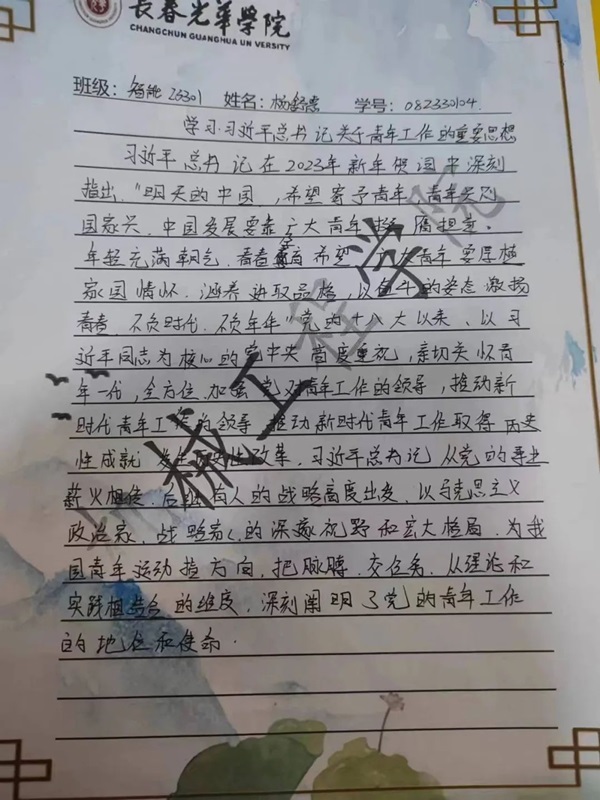 长春光华学院
CHANGCHUN GUANGHUA UNIVERSITY
班级：智能23301 姓名：杨舒惠 学号：082330104.
学习习近平总书记关于青年工作的重要思想
习近平总书记在2023年新年贺词中深刻
指出，"明天的中国，希望寄予青年。青年兴则
国家兴，中国发展要靠广大青年挺膺担当。
年轻充满朝气，青春孕育希望。广大青年要厚植
家国情怀、涵养进取品格，以奋斗的姿态激扬
青春，不负时代，不负年华"党的十八大以来，以习
近平同志为核心的党中央高度重视，亲切关怀青
年一代，全方位加强党对青年工作的领导，推动新
时代青年工作的领导，推动新时代青年工作取得历史
性成就，发生历史性改革，习近平总书记从党的事业
薪火相传、后继有人的战略高度出发，以马克思主义
政治家、战略家的深邃视野和宏大格局，为我
国青年运动指方向、把脉搏、交任务，从理论和
实践相结合的维度，深刻阐明了党的青年工作
的地位和使命.
械工程学院